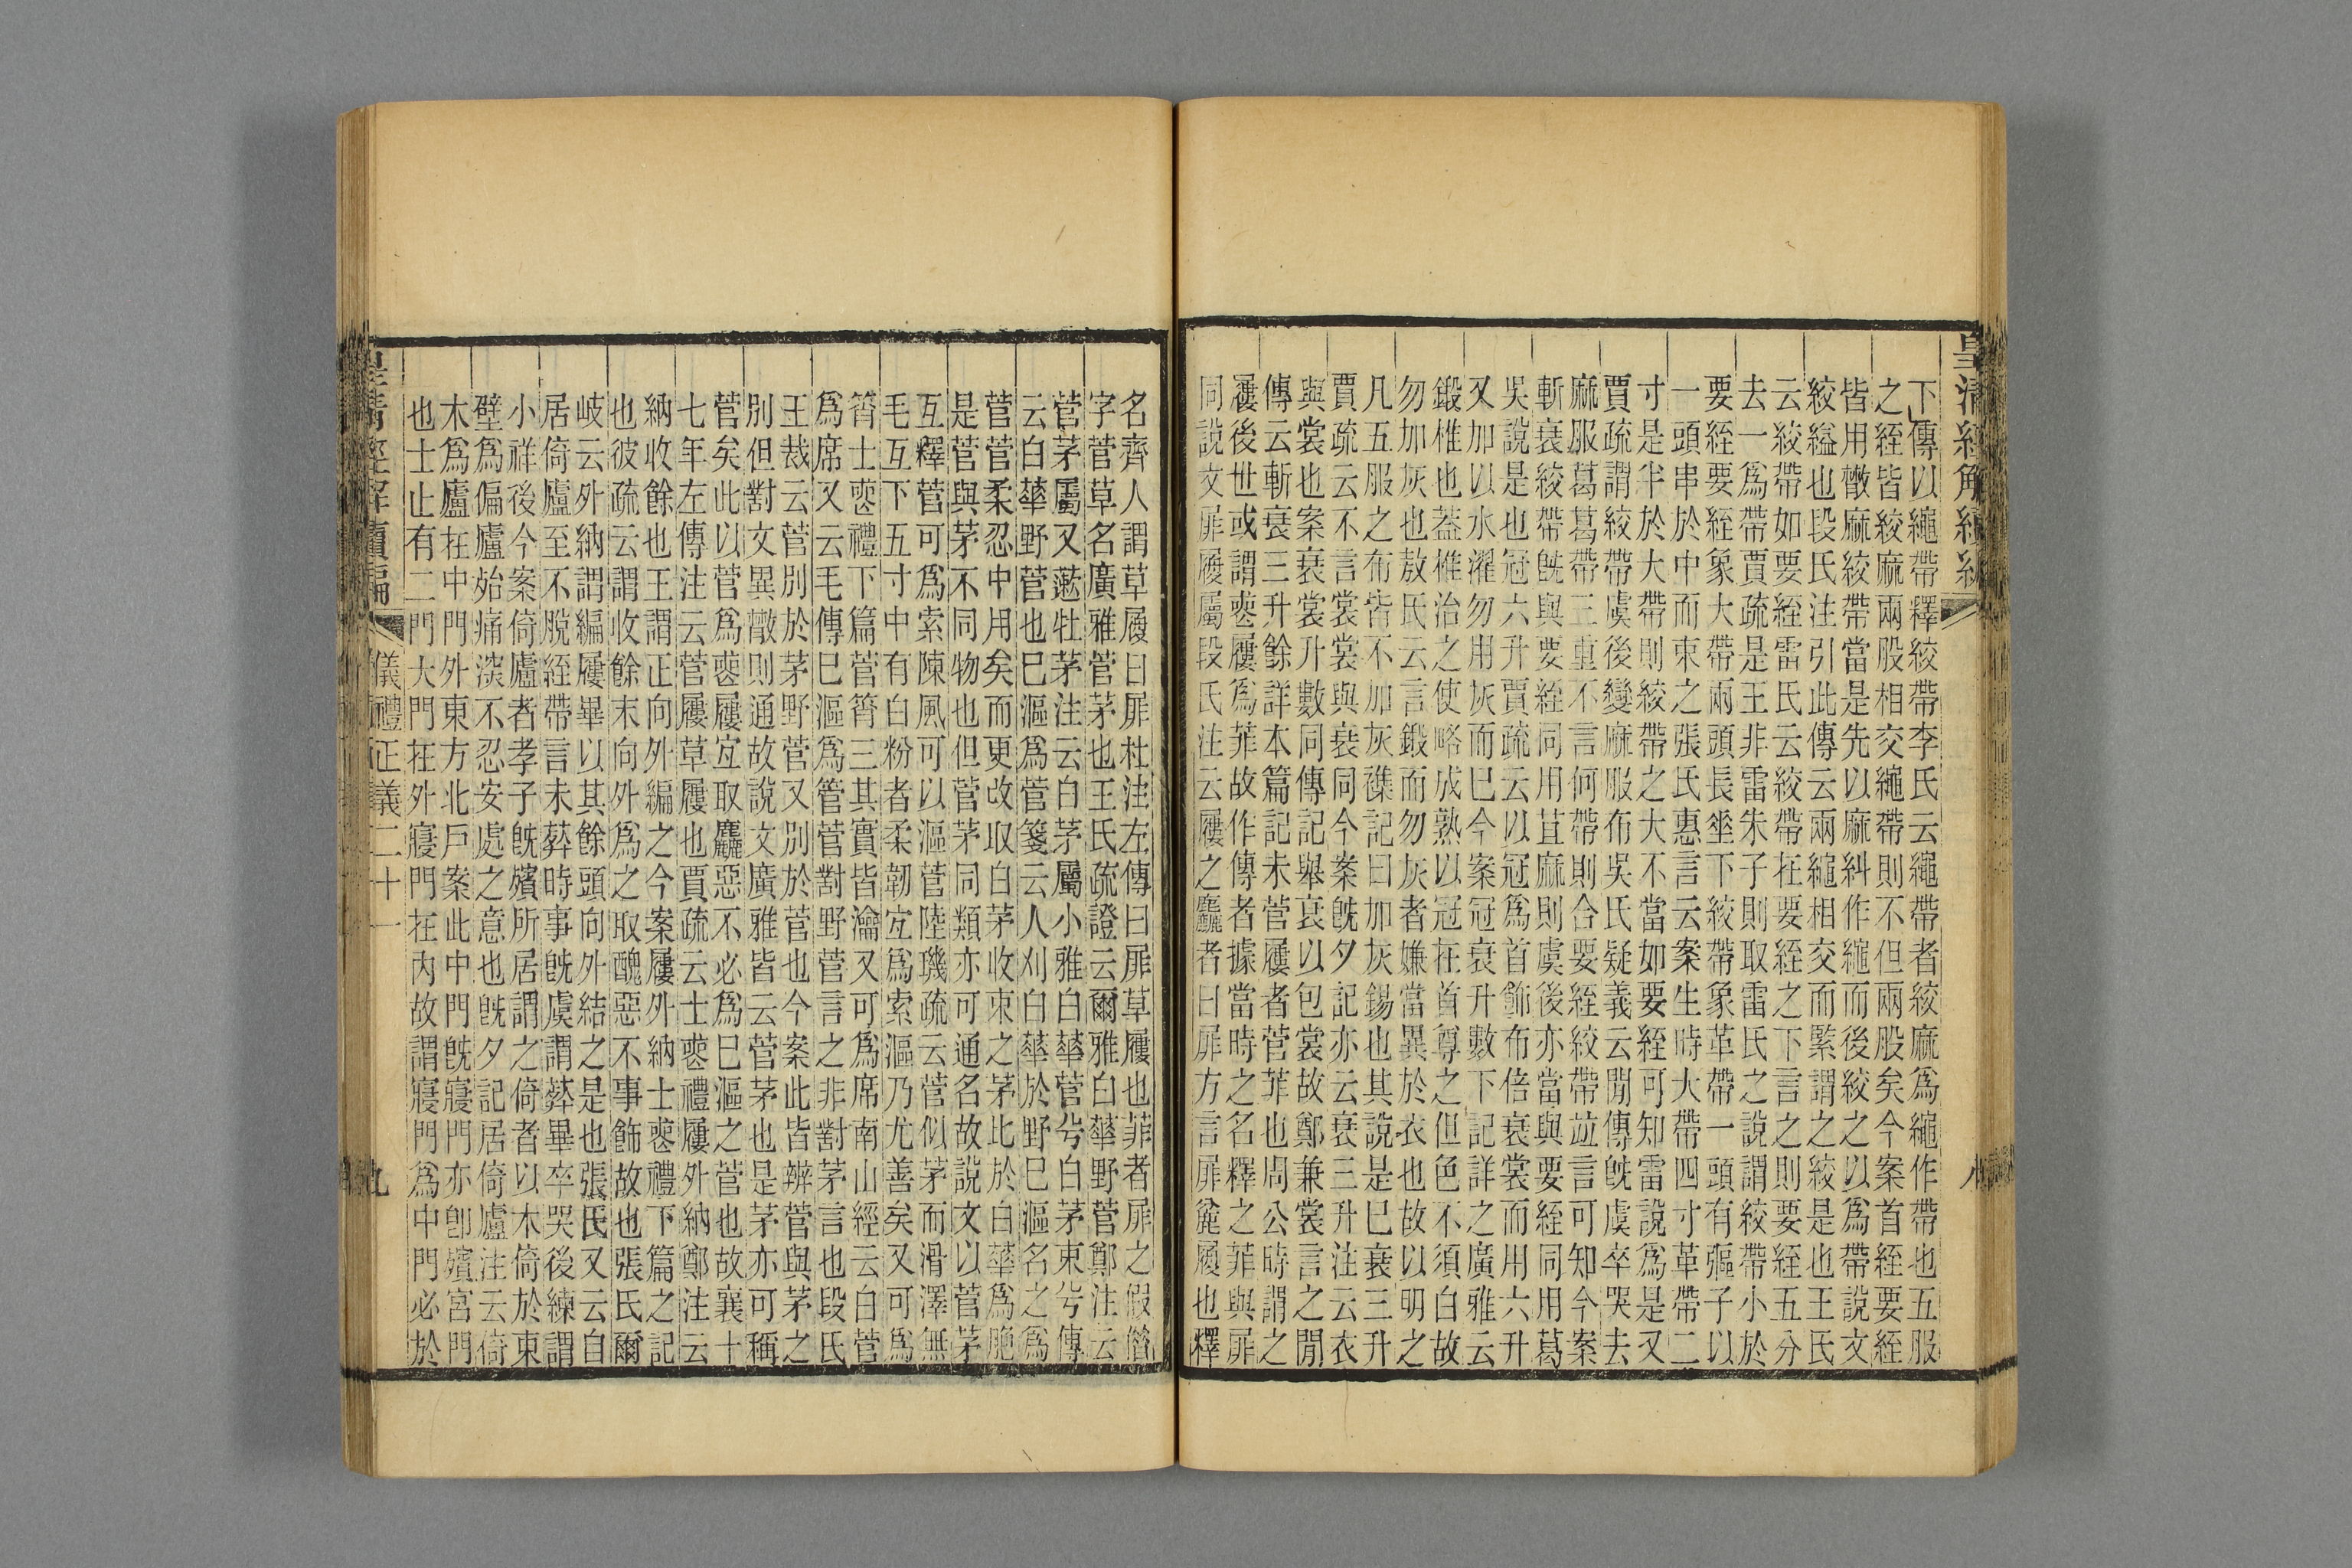 皇清經解續編
八
下傳以繩帶釋絞帶李氏云繩帶者絞麻爲繩作帶也五服
之絰皆絞麻兩股相交繩帶則不但兩股矣今案首絰要絰
皆用檄麻絞帶當是先以麻糾作繩而後絞之以爲帶說文
絞縊也段氏注引此傳云兩繩相交而緊謂之絞是也王氏
云絞帶如要絰雷氏云絞帶在要絰之下言之則要絰五分
去一爲帶賈疏是王非雷朱子則取雷氏之說謂絞帶小於
要絰要絰象大帶兩頭長垂下絞帶象革帶一頭有彄子以
一頭串於中而束之張氏惠言云案生時大帶四寸革帶二
寸是半於大帶則絞帶之大不當如要絰可知雷說爲是又
賈疏謂絞帶虞後變麻服布吳氏疑義云閒傳旣虞卒哭去
麻服葛葛帶三重不言何帶則合要絰絞帶竝言可知今案
斬衰絞帶旣與要絰同用苴麻則虞後亦當與要絰同用葛
吳說是也冠六升賈疏云以冠爲首飾布倍衰裳而用六升
又加以水濯勿用灰而巳今案冠衰升數下記詳之廣雅云
鍛椎也蓋椎治之使略成熟以冠在首尊之但色不須白故
勿加灰也敖氏云言鍛而勿灰者嫌當異於衣也故以明之
凡五服之布皆不加灰襍記曰加灰錫也其說是巳衰三升
賈疏云不言裳裳與衰同今案旣夕記亦云衰三升注云衣
與裳也案衰裳升數同傳記舉衰以包裳故鄭兼裳言之閒
傳云斬衰三升餘詳本篇記未菅屨者菅菲也周公時謂之
屨後世或謂喪屨爲菲故作傳者據當時之名釋之菲與屝
同說文屝履屬段氏注云屨之麤者曰屝方言屝麄履也釋
名齊人謂草履曰屝杜注左傳曰屝草屨也菲者屝之假借
字菅草名廣雅菅茅也王氏疏證云爾雅白華野菅鄭注云
菅茅屬又藗牡茅注云白茅屬小雅白華菅兮白茅束兮傳
云白華野菅也巳漚爲菅箋云人刈白華於野巳漚名之爲
菅菅柔忍中用矣而更改取白茅收束之茅比於白華爲脃
是菅與茅不同物也但菅茅同類亦可通名故說文以菅茅
互釋菅可爲索陳風可以漚菅陸璣疏云菅似茅而滑澤無
毛互下五寸中有白粉者柔韌宜爲索漚乃尤善矣又可爲
筲士喪禮下篇菅筲三其實皆瀹又可爲席南山經云白菅
爲席又云毛傳巳漚爲管菅對野菅言之非對茅言也段氏
王裁云菅別於茅野菅又別於菅也今案此皆辨菅與茅之
別但對文異檄則通故說文廣雅皆云菅茅也是茅亦可稱
菅矣此以菅爲喪屨宜取麤惡不必爲巳漚之菅也故襄十
七年左傳注云菅屨草屨也賈疏云士喪禮屨外納鄭注云
納收餘也王謂正向外編之今案屨外納士喪禮下篇之記
也彼疏云謂收餘末向外爲之取醜惡不事飾故也張氏爾
岐云外納謂編屨畢以其餘頭向外結之是也張氏又云自
居倚廬至不脫絰帶言未葬時事旣虞謂葬畢卒哭後練謂
小祥後今案倚廬者孝子旣殯所居謂之倚者以木倚於東
壁爲偏廬始痛深不忍安處之意也旣夕記居倚廬注云倚
木爲廬在中門外東方北戶案此中門旣寢門亦卽殯宮門
也士止有二門大門在外寢門在內故謂寢門爲中門必於
皇清經解續編
儀禮正義二十一
九